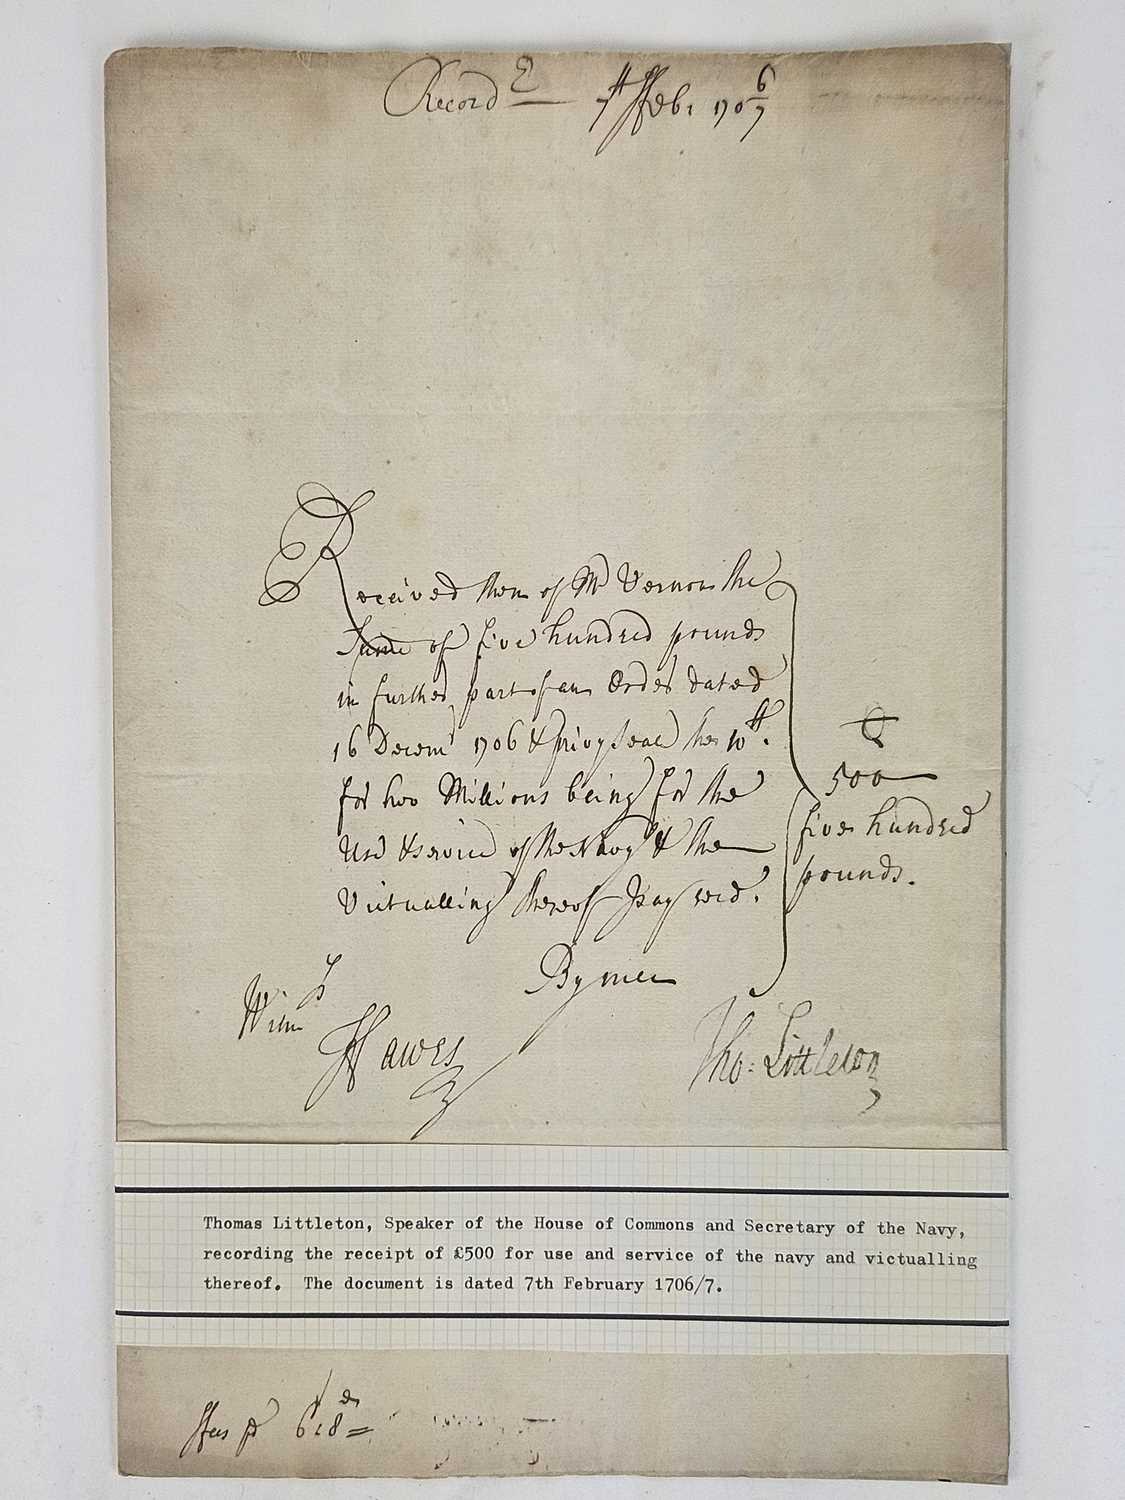 Record E 7th ffeb: 1706/7
Received then of Mr Vernon the
Sume of five hundred pounds
in further part of an Order dated
16 Decem' 1706 & privy seal the 10th.
for two Millions being for the
Use & service of the Navy & the
Victualling thereof I say recd.
£
500
five hundred
pounds.
By mee
Witn
J Hawes
Tho: Littleton
Thomas Littleton, Speaker of the House of Commons and Secretary of the Navy,
recording the receipt of £500 for use and service of the navy and victualling
thereof. The document is dated 7th February 1706/7.
ffees pd 6s: 8d =